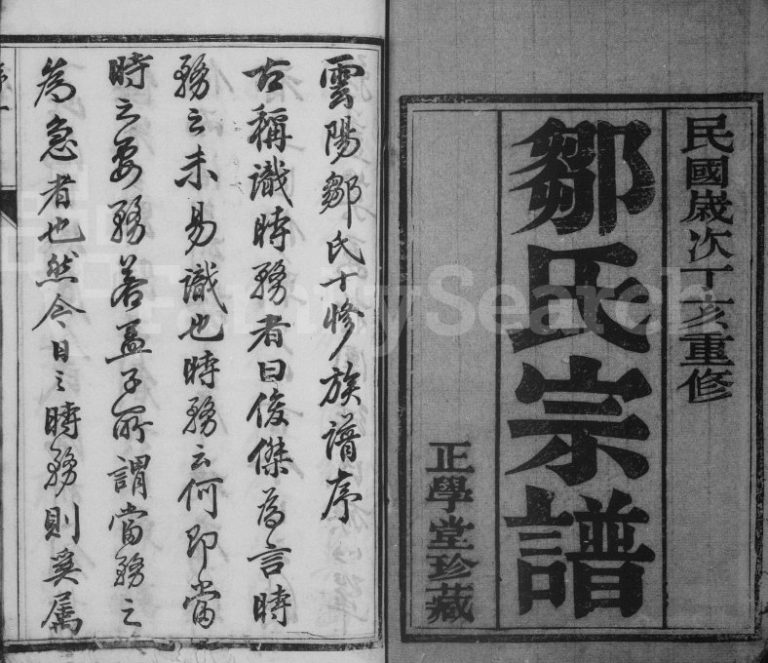 民國歲次丁亥重修
鄒氏宗譜
正學堂珍藏
雲陽鄒氏十修族譜序
古稱識時務者曰俊傑為言時
務之未易識也時務云何即當
時之要務若孟子所謂當務之
為急者也然今日之時務則奚属
FamilySearch